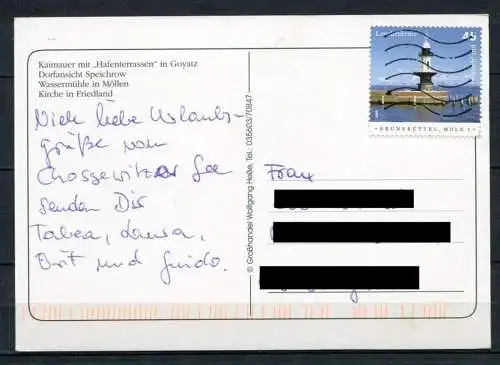 Kaimauer mit „Hafenterrassen" in Goyatz
Dorfansicht Speichrow
Wassermühle in Möllen
Kirche in Friedland
Viele liebe Urlaubs-
grüße vom
Chossewitzer See
senden Dir
Tabea,
Brit und Guido.
© Großhandel Wolfgang Heße, Tel.: 035603/70847
Leuchttürme 45
BRUNSBÜTTEL, MOLE 1
Frau